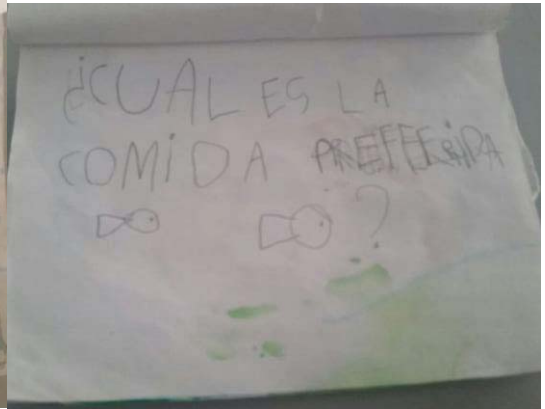 ¿CUAL ES LA
COMiDA PREFERiDA
?